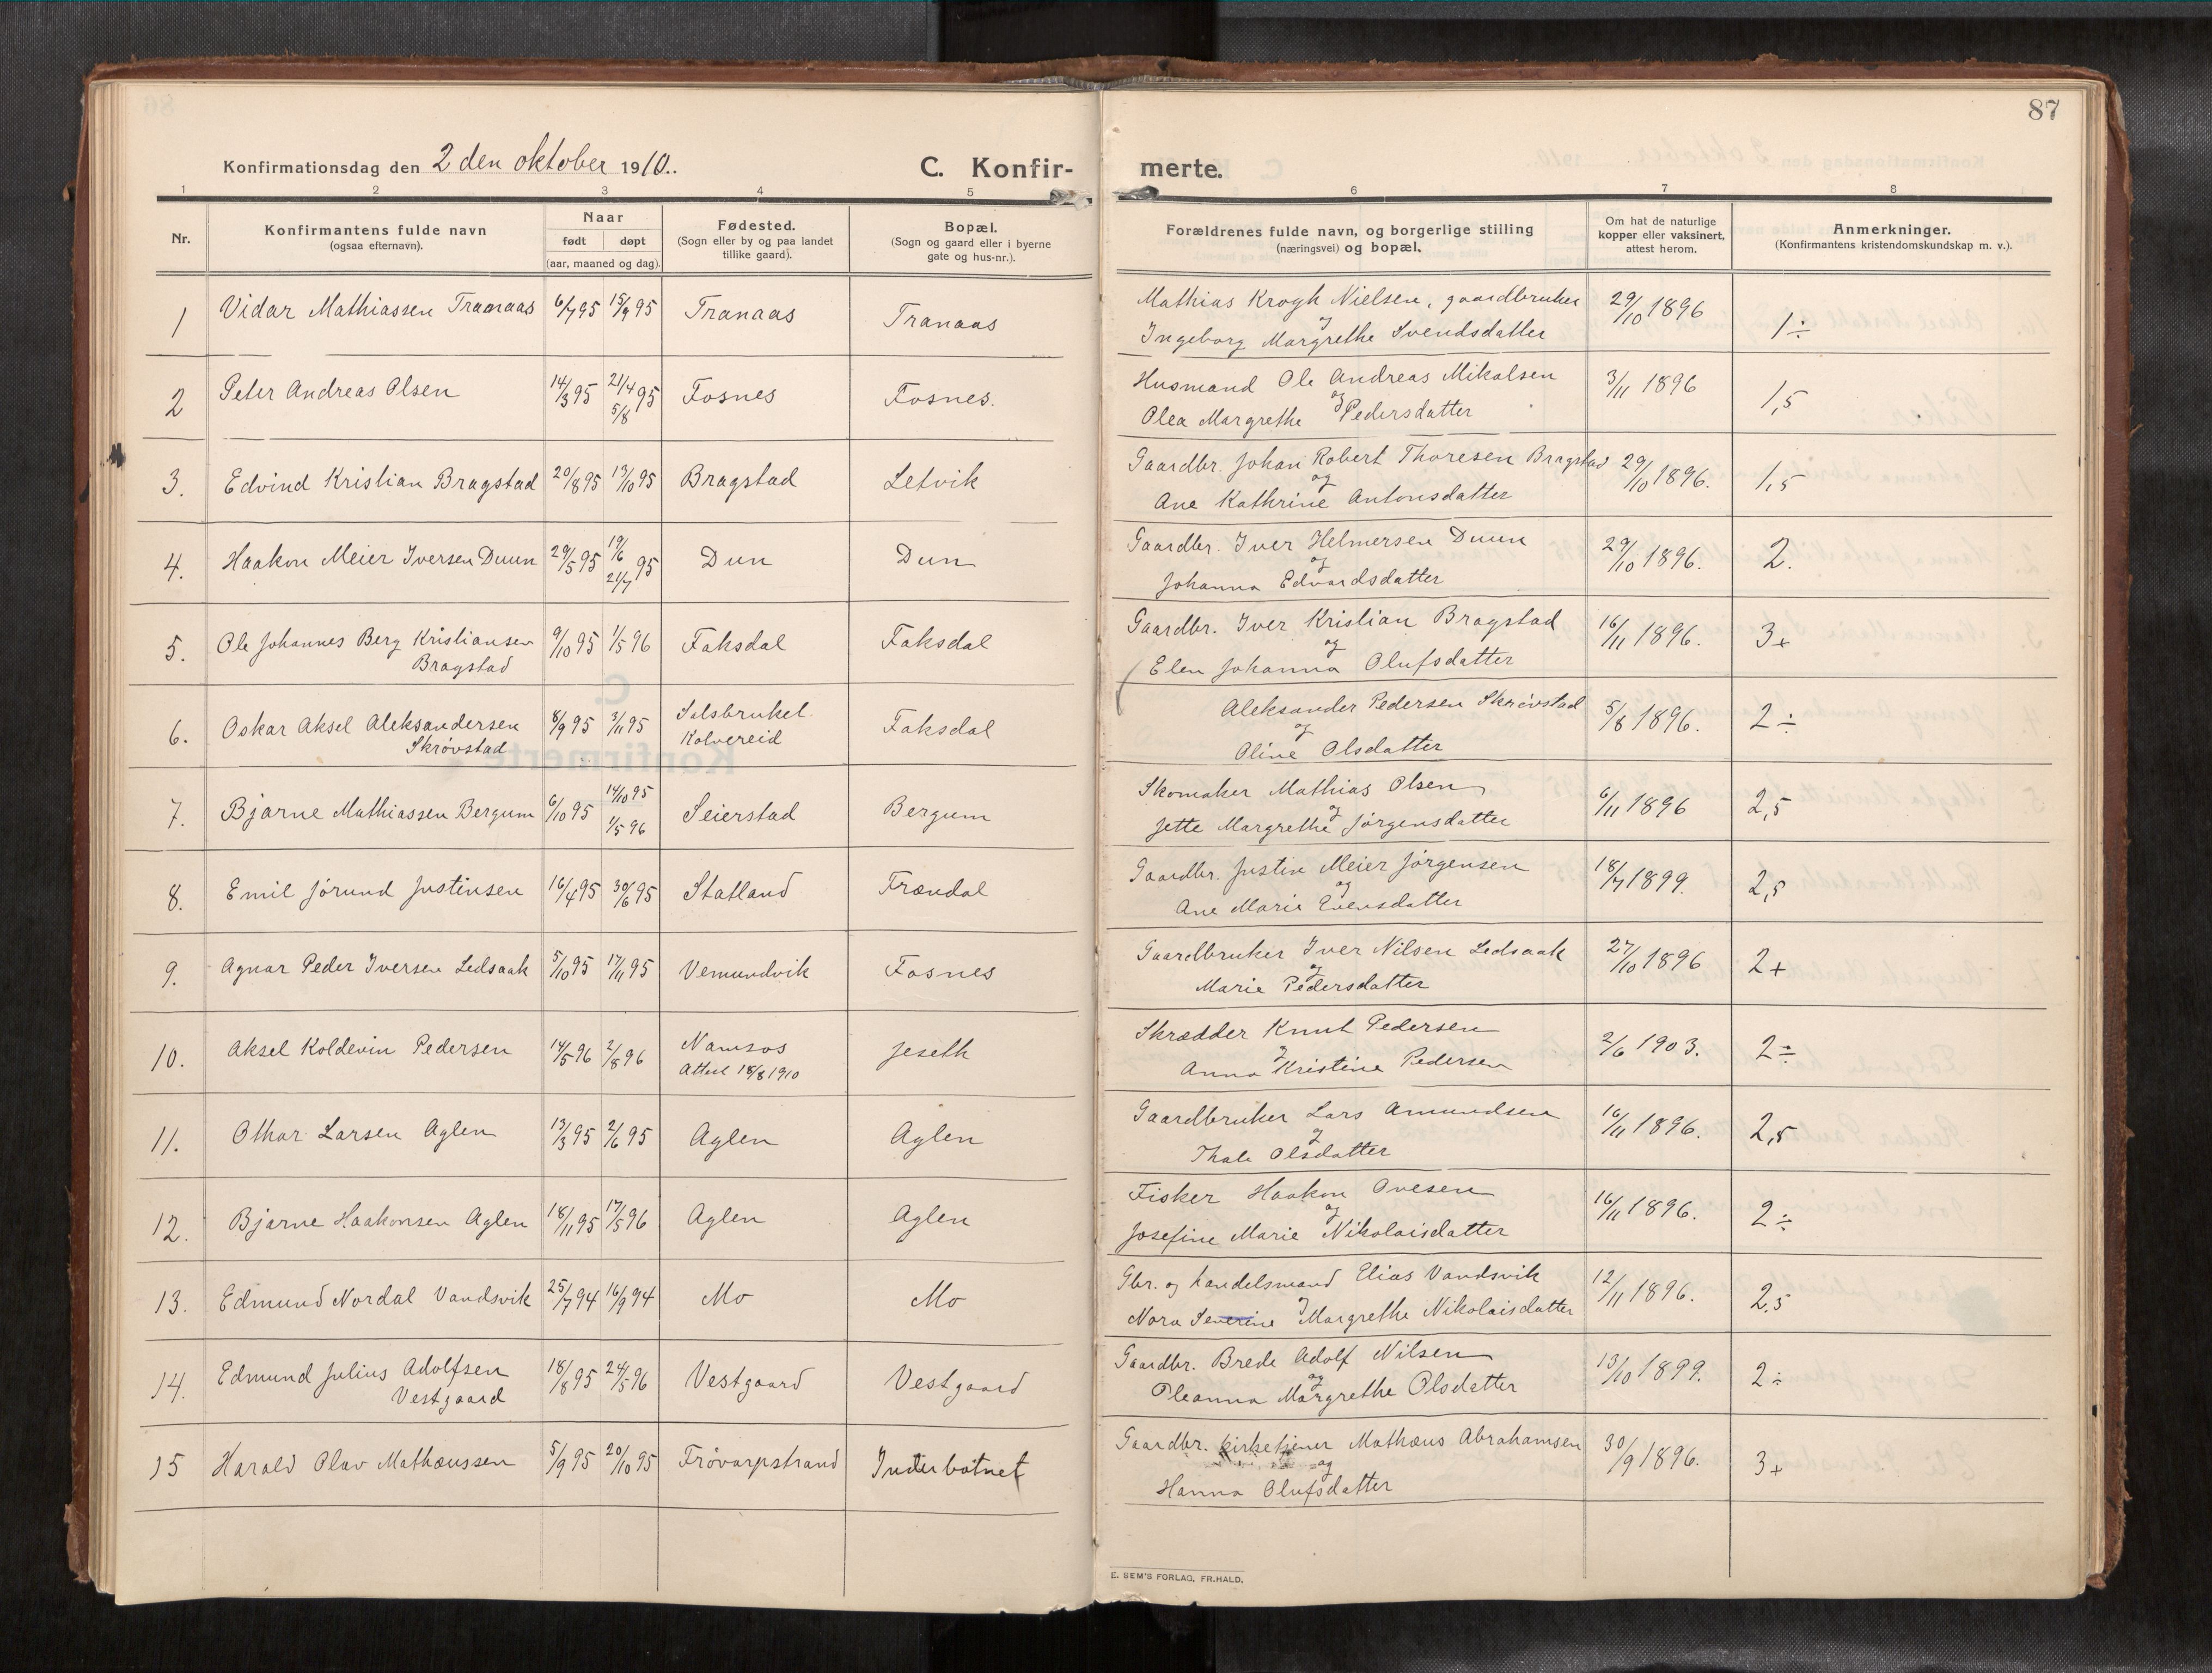 87
Konfirmationsdag den 2 den oktober 1910.
C. Konfir-
merte.
1 2 3 4 5 6 7 8
Nr.
Konfirmantens fulde navn
(ogsaa efternavn).
Naar
født døpt
(aar, maaned og dag).
Fødested.
(Sogn eller by og paa landet
tillike gaard).
Bopæl.
(Sogn og gaard eller i byerne
gate og hus-nr.).
Forældrenes fulde navn, og borgerlige stilling
(næringsvei) og bopæl.
Om hat de naturlige
kopper eller vaksinert,
attest herom.
Anmerkninger.
(Konfirmantens kristendomskundskap m. v.).
1 Vidar Mathiassen Tranaas 6/7 95 15/9 95 Tranaas Tranaas
Mathias Krogh Nielsen, gaardbruker
og
Ingeborg Margrethe Svendsdatter
29/10 1896 1÷
2 Peter Andreas Olsen 14/3 95 21/4 95 5/8 Fosnes Fosnes.
Husmand Ole Andreas Mikalsen
og
Olea Margrethe Pedersdatter
3/11 1896 1,5
3. Edvind Kristian Bragstad 20/8 95 13/10 95 Bragstad Letvik
Gaardbr. Johan Robert Thoresen Bragstad
og
Ane Kathrine Antonsdatter
29/10 1896. 1,5
4. Haakon Meier Iversen Duun 29/5 95 19/6 21/7 95 Dun Dun
Gaardbr. Iver Helmersen Duun
og
Johanna Edvardsdatter
29/10 1896. 2.
5. Ole Johannes Berg Kristiansen
Bragstad
9/10 95 1/5 96 Faksdal Faksdal
Gaardbr. Iver Kristian Bragstad
og
Elen Johanna Olufsdatter
16/11 1896. 3+
6. Oskar Aksel Aleksandersen
Skrøvstad
8/9 95 3/11 95 Salsbruket.
Kolvereid
Faksdal
Aleksander Pedersen Skrøvstad
og
Oline Olsdatter
5/8 1896. 2÷
7. Bjarne Mathiassen Bergum 6/10 95 14/10 95 1/5 96 Seierstad Bergum
Skomaker Mathias Olsen
og
Jette Margrethe Jørgensdatter
6/11 1896 2,5
8. Emil Jørund Justinsen 16/4 95 30/6 95 Statland Frændal
Gaardbr. Justin Meier Jørgensen
og
Ane Marie Evensdatter
18/7 1899. 2,5
9. Agnar Peder Iversen Ledsaak 5/10 95 17/11 95 Vemundvik Fosnes
Gaardbruker Iver Nilsen Ledsaak
og
Marie Pedersdatter
27/10 1896 2+
10. Aksel Koldevin Pedersen 14/5 96 2/8 96 Namsos
Attest 18/8 1910
Jeseth
Skrædder Knut Pedersen
og
Anna Kristine Pedersen
2/6 1903. 2÷
11. Othar Larsen Aglen 13/3 95 2/6 95 Aglen Aglen
Gaardbruker Lars Amundsen
og
Thale Olsdatter
16/11 1896. 2,5
12. Bjarne Haakonsen Aglen 18/11 95 17/5 96 Aglen Aglen
Fisker Haakon Ovesen
og
Josefine Marie Nikolaisdatter
16/11 1896. 2÷
13. Edmund Nordal Vandsvik 25/7 94 16/9 94 Mo Mo
Gbr. og handelsmand Elias Vandsvik
og
Nora Severine Margrethe Nikolaisdatter
12/11 1896. 2,5
14. Edmund Julius Adolfsen
Vestgaard
18/8 95 24/5 96 Vestgaard Vestgaard
Gaardbr. Brede Adolf Nilsen
og
Oleanna Margrethe Olsdatter
13/10 1899. 2÷
15 Harald Olav Mathæussen 5/9 95 20/10 95 Frøvarpstrand Inderbotnet
Gaardbr. kirketjener Mathæus Abrahamsen
og
Hanna Olufsdatter
30/9 1896. 3+
E. SEM'S FORLAG, FR.HALD.